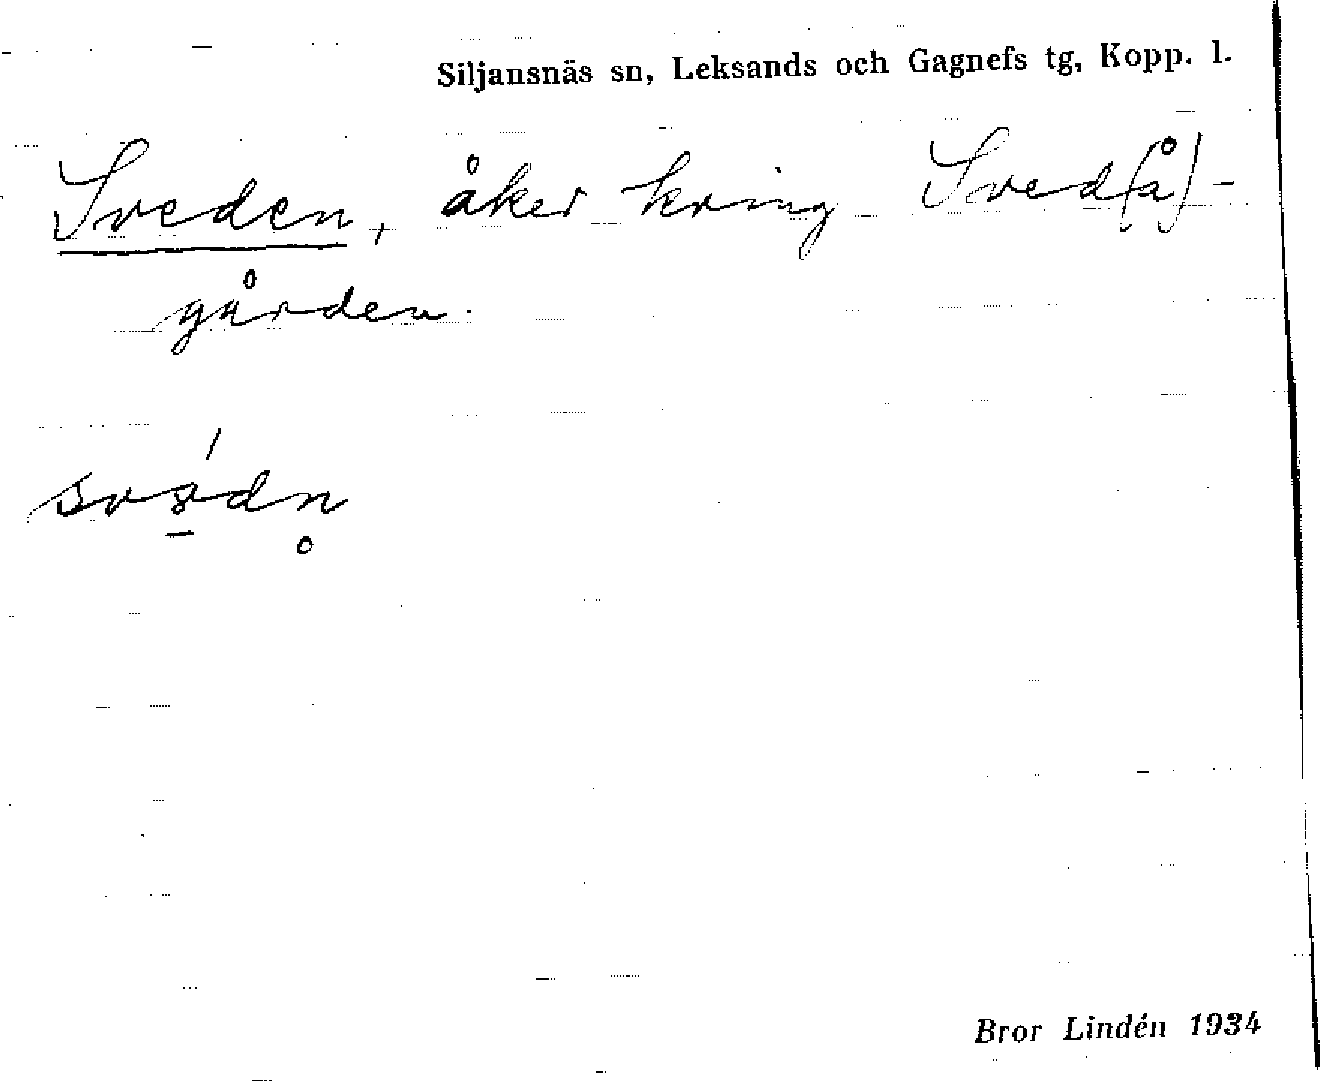 Siljansnäs sn, Leksands och Gagnefs tg, Kopp. l.
Sveden, åker kring Sved(å)-
gården.
Bror Lindén 1934